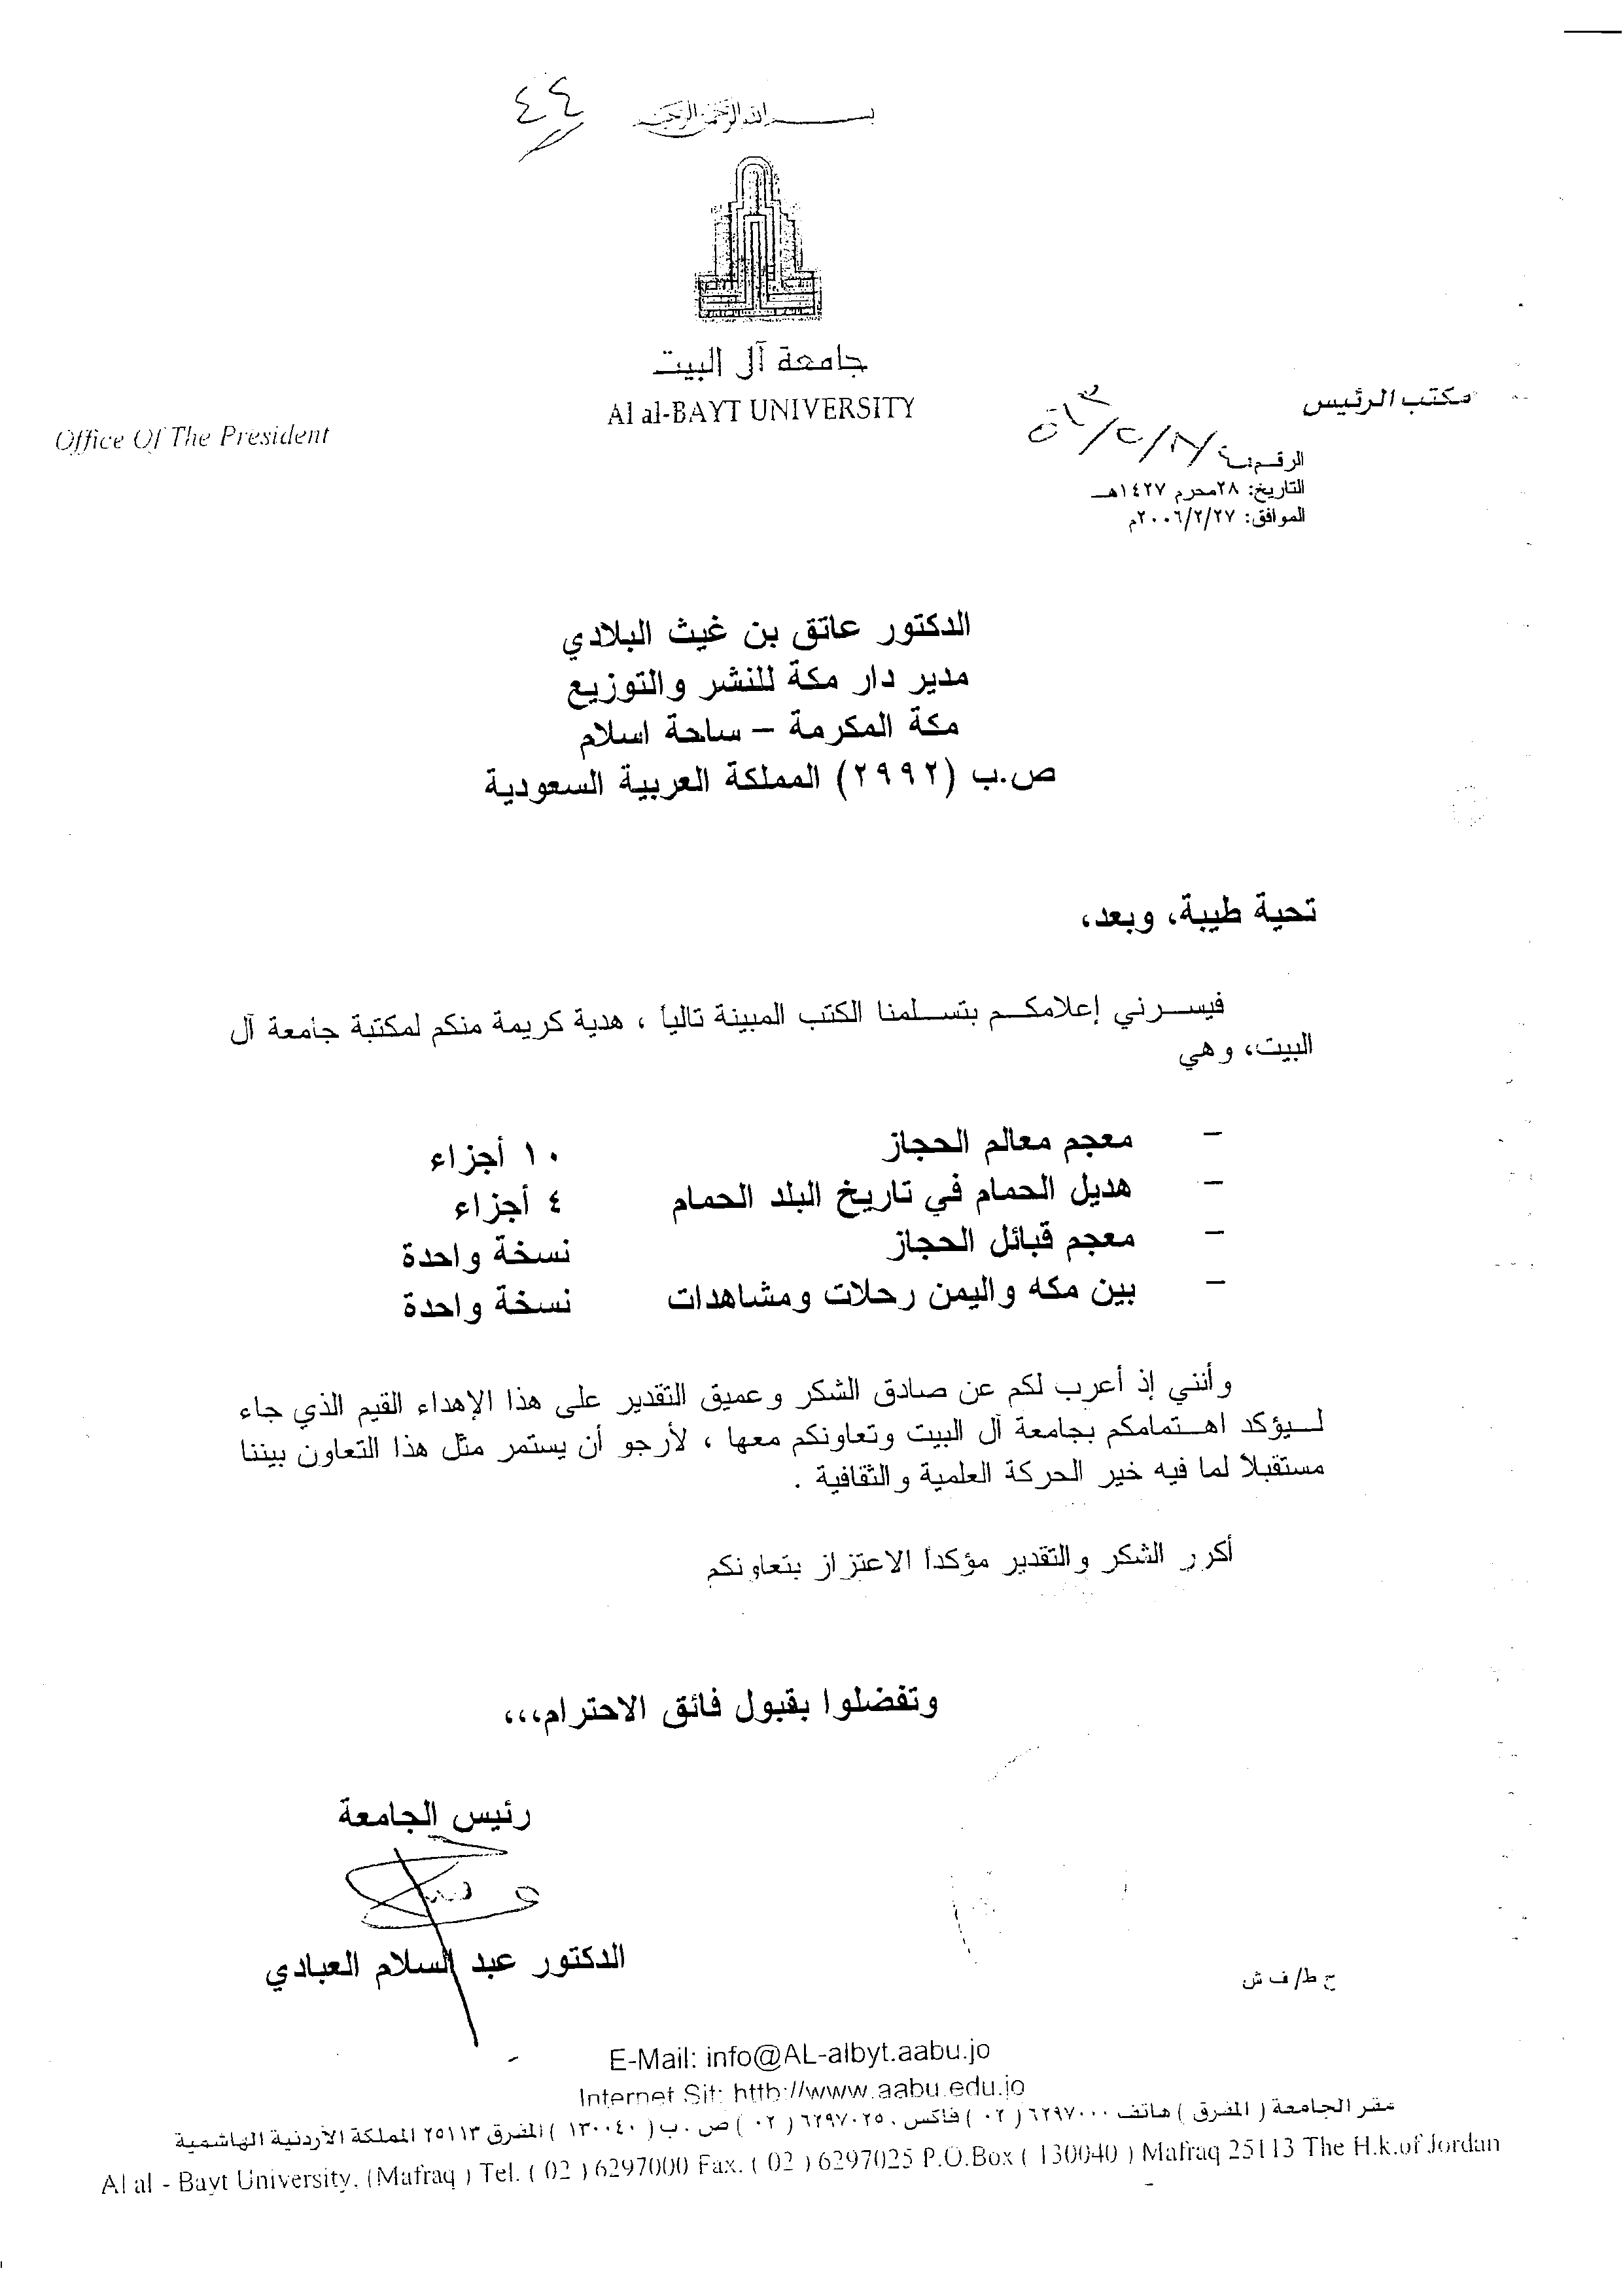 ٤٤
بسم الله الرحمن الرحيم
جامعة آل البيت
Al al-BAYT UNIVERSITY
مكتب الرئيس
Office Of The President
الرقم:
التاريخ: ٢٨محرم ١٤٢٧هـ
الموافق: ٢٠٠٦/٢/٢٧م
الدكتور عاتق بن غيث البلادي
مدير دار مكة للنشر والتوزيع
مكة المكرمة – ساحة اسلام
ص.ب (٢٩٩٢) المملكة العربية السعودية
تحية طيبة، وبعد،
فيسرني إعلامكم بتسلمنا الكتب المبينة تالياً ، هدية كريمة منكم لمكتبة جامعة آل
البيت، وهي
– معجم معالم الحجاز ١٠ أجزاء
– هديل الحمام في تاريخ البلد الحمام ٤ أجزاء
– معجم قبائل الحجاز نسخة واحدة
– بين مكه واليمن رحلات ومشاهدات نسخة واحدة
وأنني إذ أعرب لكم عن صادق الشكر وعميق التقدير على هذا الإهداء القيم الذي جاء
ليؤكد اهتمامكم بجامعة آل البيت وتعاونكم معها ، لأرجو أن يستمر مثل هذا التعاون بيننا
مستقبلاً لما فيه خير الحركة العلمية والثقافية .
أكرر الشكر والتقدير مؤكداً الاعتزاز بتعاونكم
وتفضلوا بقبول فائق الاحترام،،،
رئيس الجامعة
الدكتور عبد السلام العبادي
ح ط/ ف ش
E-Mail: info@AL-albyt.aabu.jo
Internet Sit: http://www.aabu.edu.jo
مقر الجامعة ( المفرق ) هاتف ٦٢٩٧٠٠٠ ( ٠٢ ) فاكس ٦٢٩٧٠٢٥ ( ٠٢ ) ص . ب ( ١٣٠٠٤٠ ) المفرق ٢٥١١٣ المملكة الأردنية الهاشمية
Al al - Bayt University, (Mafraq ) Tel. ( 02 ) 6297000 Fax. ( 02 ) 6297025 P.O.Box ( 130040 ) Mafraq 25113 The H.k.of Jordan